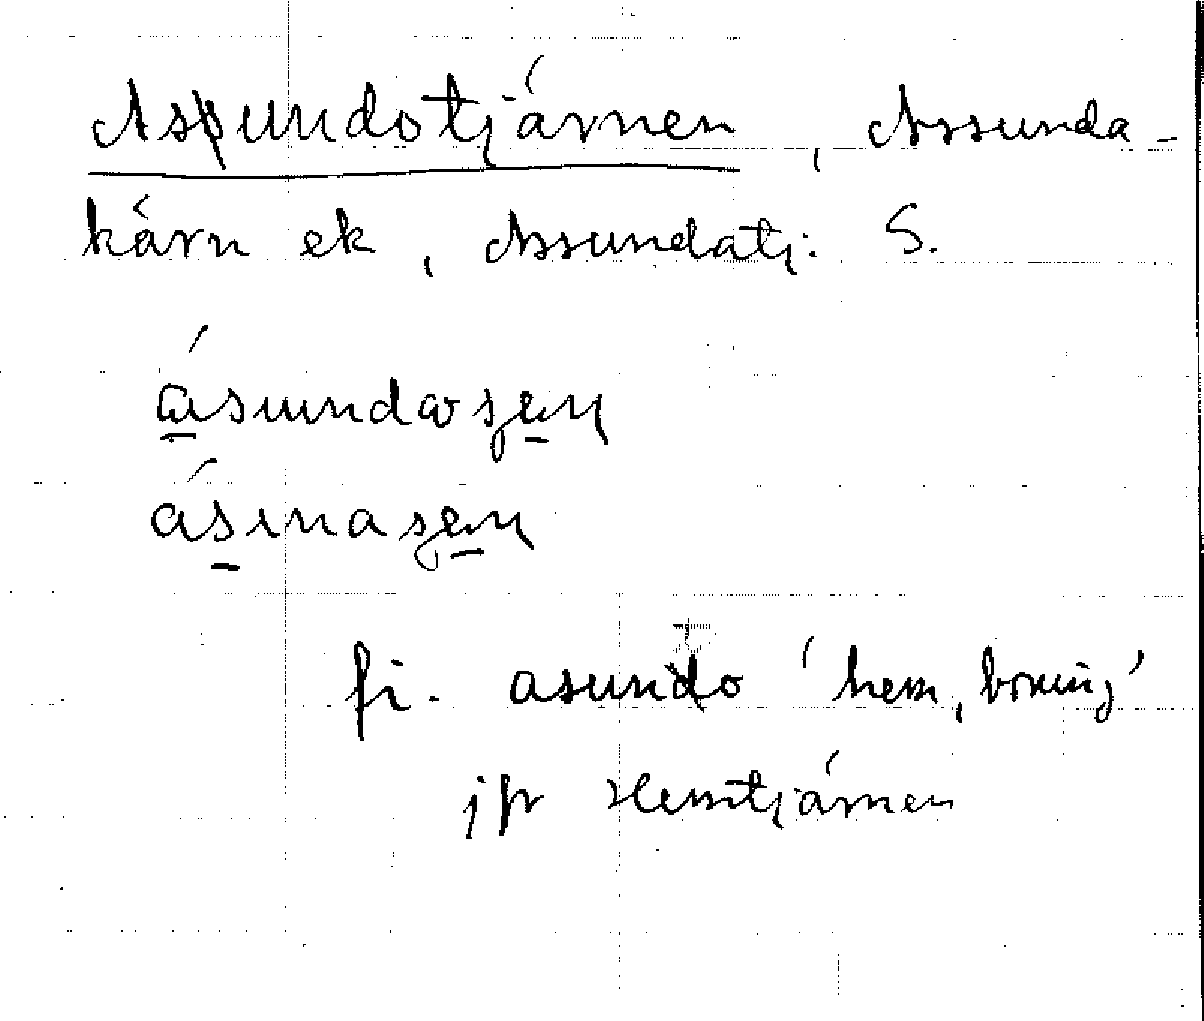 Aspundotjärnen, Assunda-
kärn ek, Assundatj: S.
ásundaʂen
ásınaʂen
fi. asundo 'hem, boning'
jfr Hemtjärnen